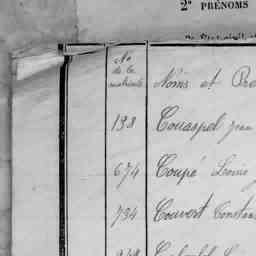 2° PRÉNOMS
No
de la
matricule
Noms et Pré
138 Couaspel Jean
674 Coupé Louis
734 Couvert Constan